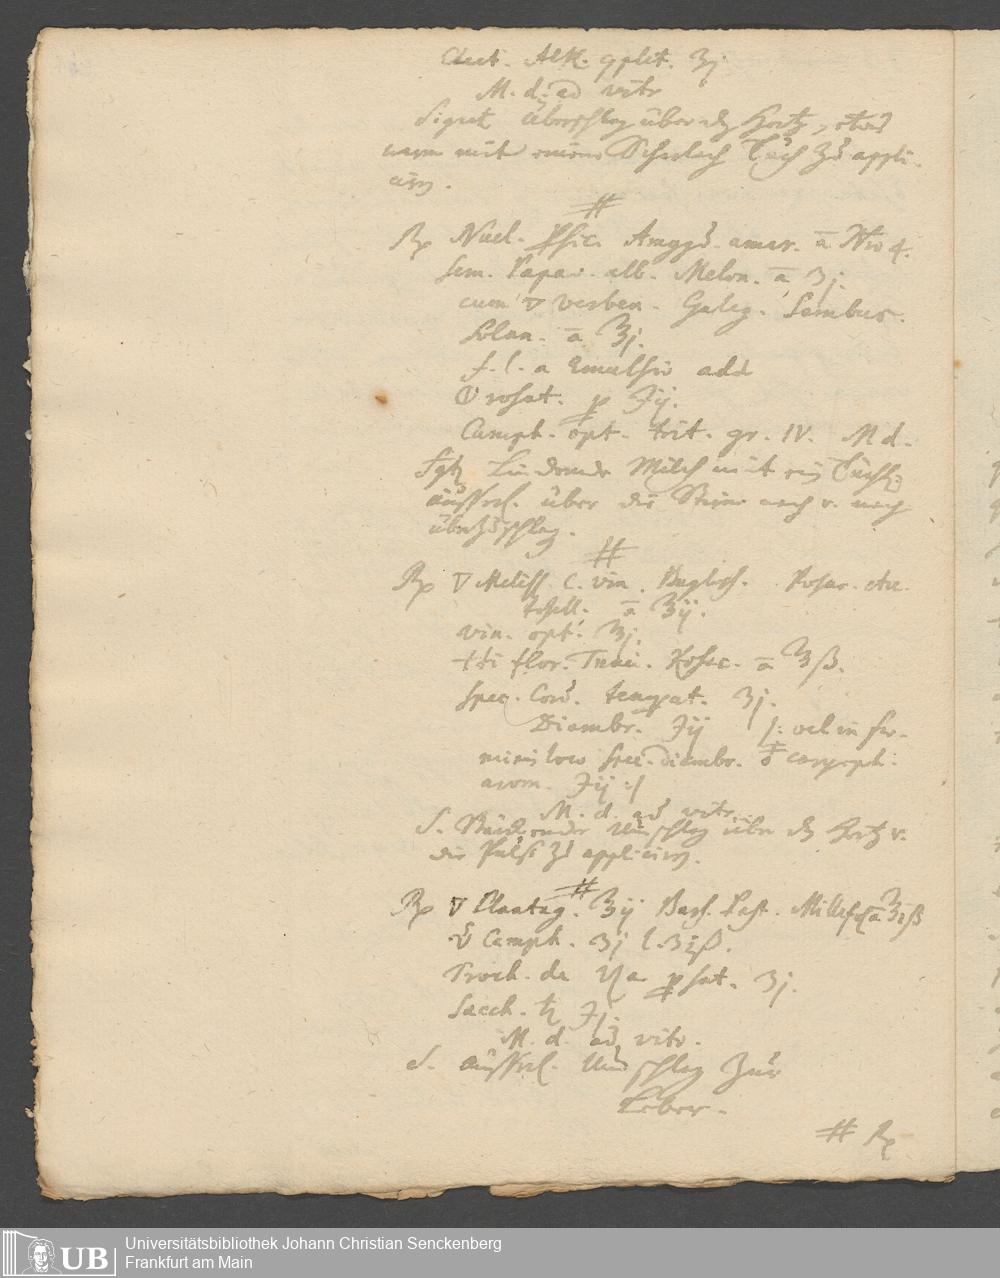 Alk. ʒj
M. d. ad vitr
Signat. Überschlag über dz Hertz, etwas
warm mit einem Scharlach Tuch zu appli-
cirn.
#
Rp Nucl. Persic. Amygd. amar. ā No 4.
Sem. Papav. alb. Melon. ā ʒj.
cum ▽ Verben. Galeg. Sambuc.
Solan. ā ℥j.
f. l. a Emulsio add
rosat. p ℈ij.
Camph. opt. trit. gr. IV. M d.
Sgtz Lindernde Milch mit ein Tüchl:
äusserl. über die Stirne nach u. nach
überzuschlag.
#
Rp ▽ Meliss. c. vin. Bugloss. Rosar. Ace-
tosell. ā ℥ij.
vin. opt. ℥j.
flor. Tunic. Rosac. ā ℥ß.
Spec. Cord. temperat. ʒj.
Diambr. ℈ij /: vel in fe-
minis loco Spec. diambr. caryoph.
arom. ℈ij :/
M. d. ad vitr.
S. Stärckender Umschlag über dz Hertz u.
die Pulse zu applicirn.
#
Rp ▽ Plantag. ℥ij Bors. Past. Millefol. ā ℥iß
Camph. ʒj l. ʒiß.
Troch. de ʒj.
Sacch. ♄ ℈j.
M. d. ad vitr.
S. äusserl. Umschlag zur
Leber.
# Rp
UB Universitätsbibliothek Johann Christian Senckenberg
Frankfurt am Main